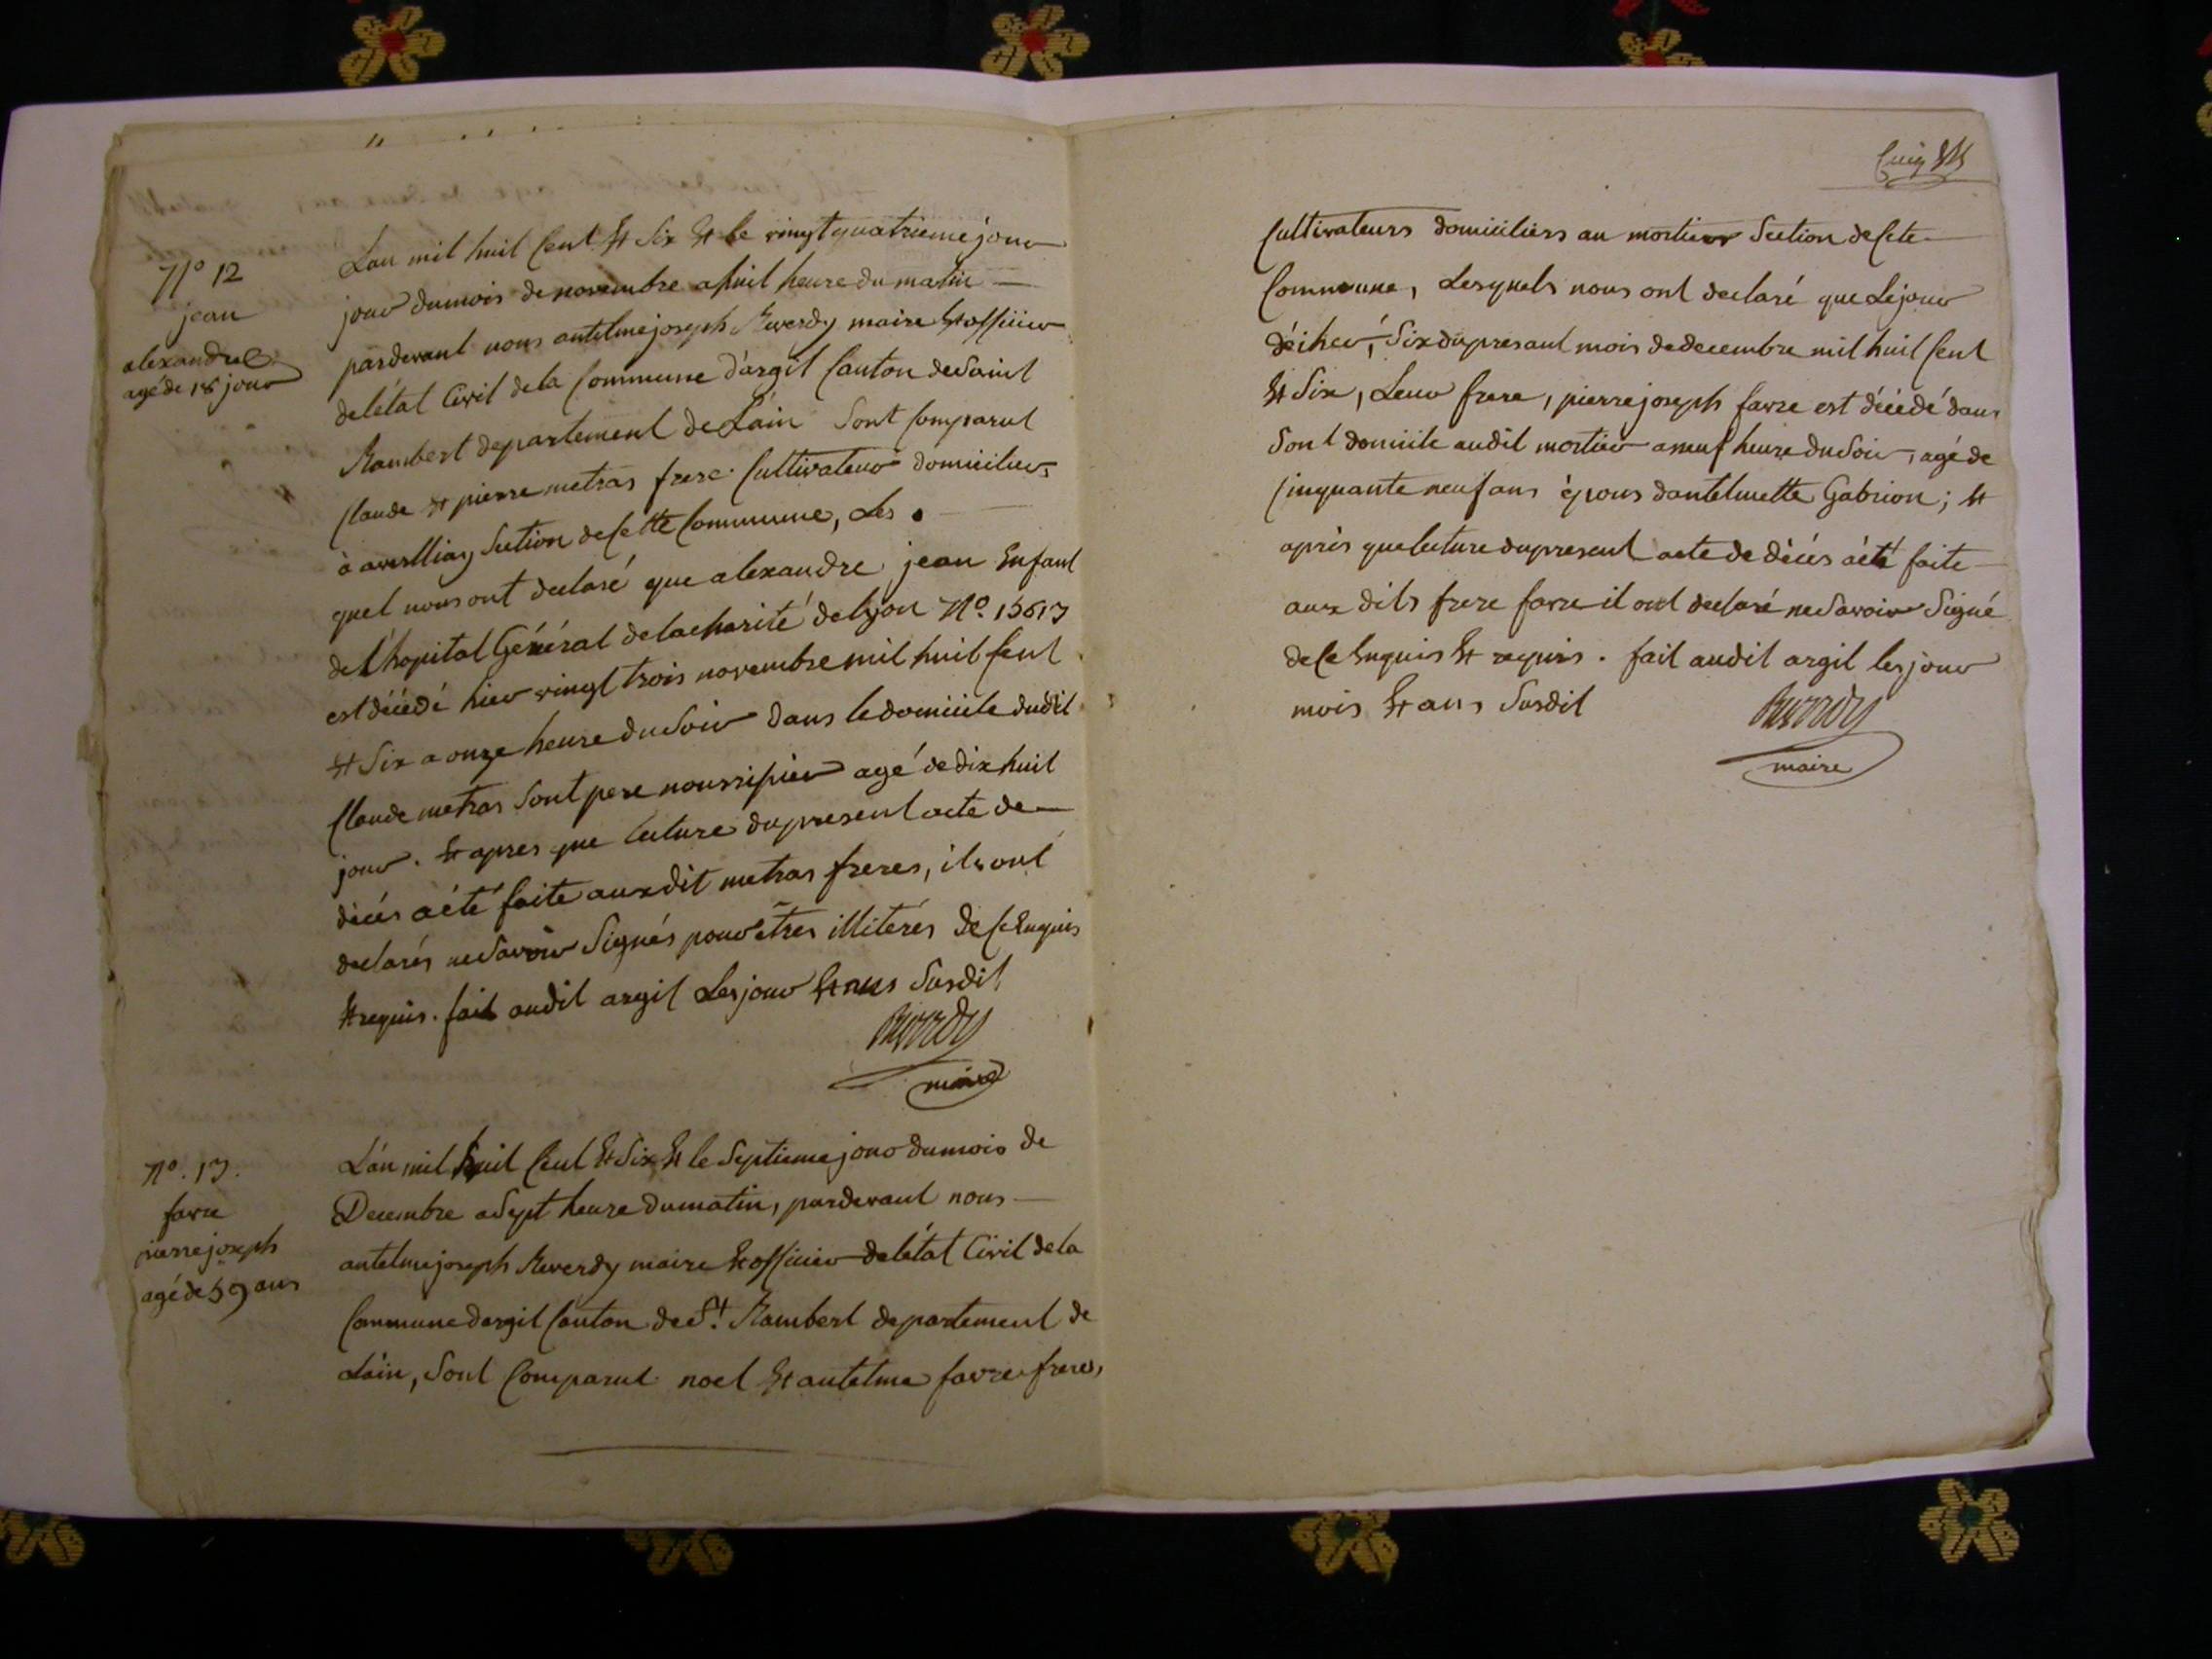 N.o 12
jean
alexandre
agé de 18 jour
L'an mil huit Cent Et Six Et le vingt quatrieme jour
jour du mois de novembre a huit heure du matin
pardevant nous antelme joseph Reverdy maire Et officier
de létat Civil de la Commune d'argil Canton de Saint
Rambert departement de L'ain Sont Comparut
Claude Et pierre metras frere Cultivateur domiciliers
à averlliaz Section de Cette Commune, Les
quel nous ont declaré que alexandre jean Enfant
de l'hopital Général de la charité de lyon N.o
est décédé hier vingt trois novembre mil huit Cent
Et Six a onze heure du Soir dans le domicile dudit
Claude metras Sont pere nourrisier agé de dix huit
jour. Et apres que lecture du present acte de
décés a été faite aux dit metras freres, ils ont
declarés ne Savoir Signés pour êtres illiterés de Ce Enquis
Et requis. fait audit argil Les jour Et ans Susdit
Reverdy
maire
N.o 13.
favre
pierre joseph
agé de 59 ans
L'an mil huit Cent Et Six Et le Septieme jour du mois de
Decembre a Sept heure du matin, pardevant nous
antelme joseph Reverdy maire Et officier de létat Civil de la
Commune dargil Canton de St. Rambert departement de
L'ain, Sont Comparut noel Et antelme favre freres,
Cultivateurs domiciliers au mortier Section de Cete
Commune, Lesquels nous ont declaré que Le jour
d'éiher, Six du presant mois de decembre mil huit Cent
Et Six, Leur frere, pierre joseph favre est décédé dans
Sont domicile audit mortier a neuf heure du Soir, agé de
Cinquante neuf ans époux dantelmette Gabrion; Et
après que lecture du present acte de décés a été faite
aux dits frere favre il ont declaré ne Savoir Signé
de Ce Enquis Et requis. fait audit argil les jour
mois Et ans Susdit
Reverdy
maire